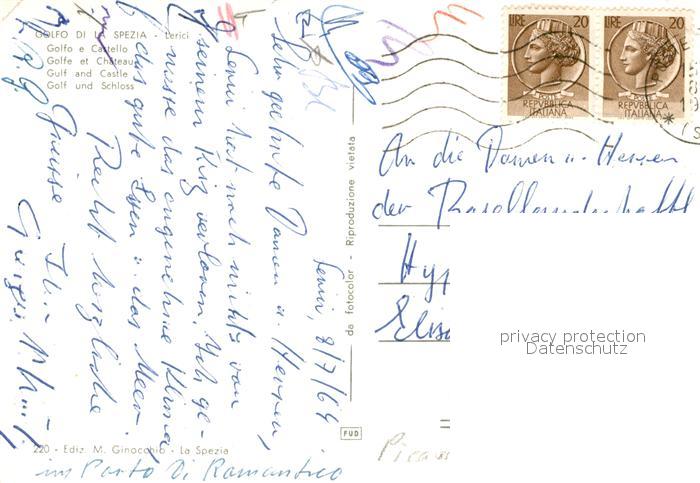 GOLFO DI LA SPEZIA - Lerici
Golfo e Castello
Golfe et Château
Gulf and Castle
Golf und Schloss
Lerici, 8/7/64
Sehr geehrte Damen u. Herren,
Lerici hat noch nichts von
seinem Reiz verloren. Ich ge-
niesse das angenehme Klima,
das gute Essen u. das Meer.
Recht herzliche
Grüsse Ihr
220 - Ediz. M. Ginocchio - La Spezia
im Porto di Romantico
da fotocolor - Riproduzione vietata
FUD
LIRE 20
REPVBBLICA
ITALIANA
LIRE 20
REPVBBLICA
ITALIANA
An die Damen u. Herren
der Basellandschaftl
Hyp
Elisa
privacy protection
Datenschutz